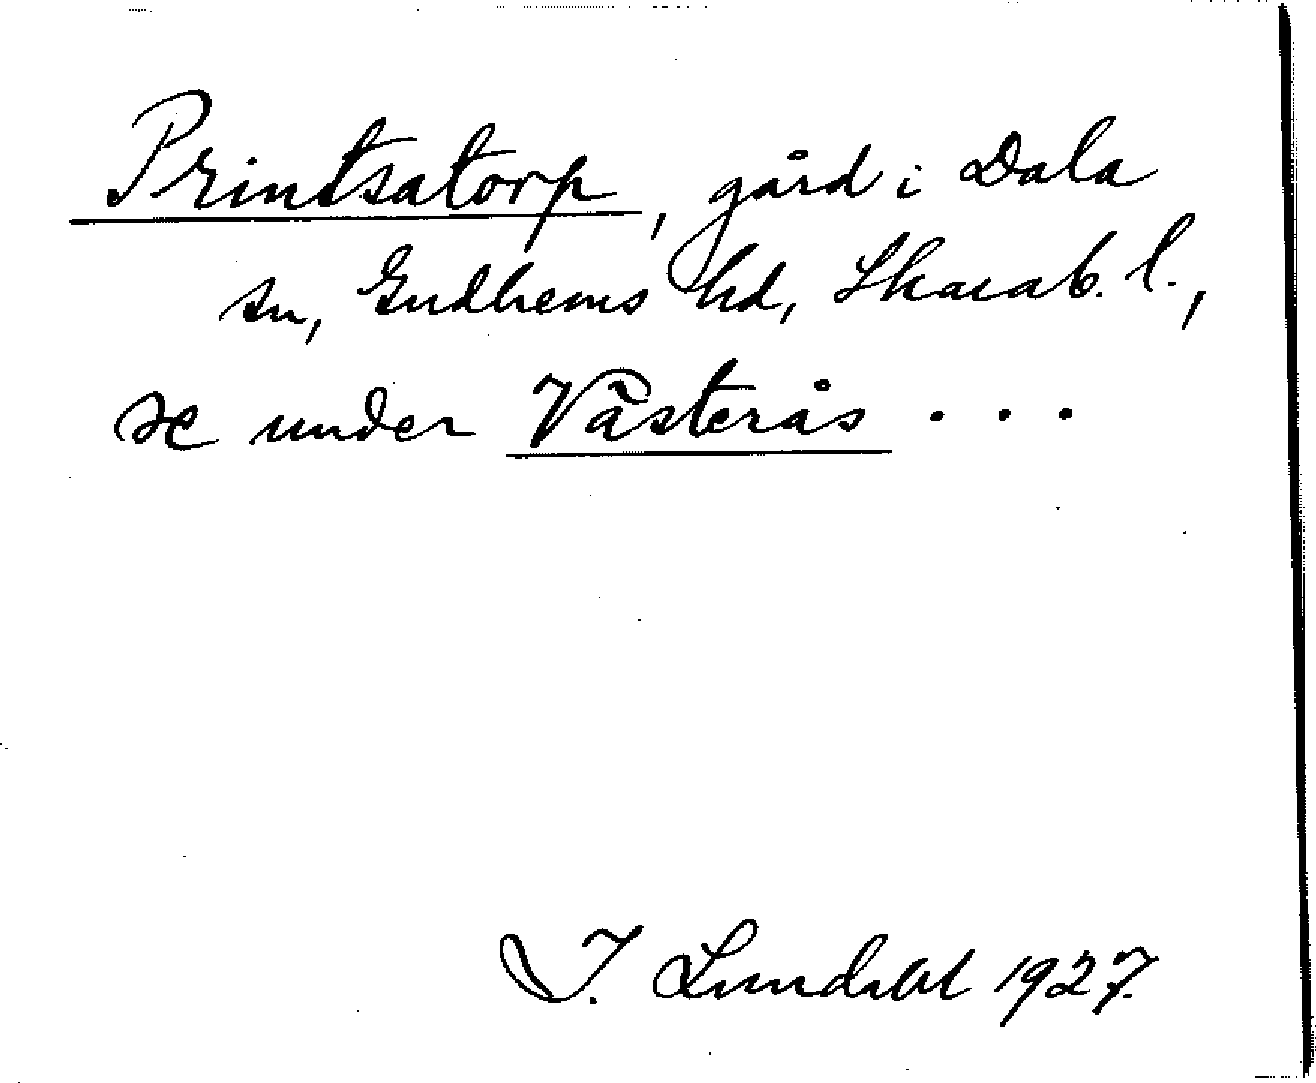 Printsatorp, gård i Dala
sn, Gudhems hd, Skarab. l.,
se under Västerås . . .
I. Lundahl 1927.